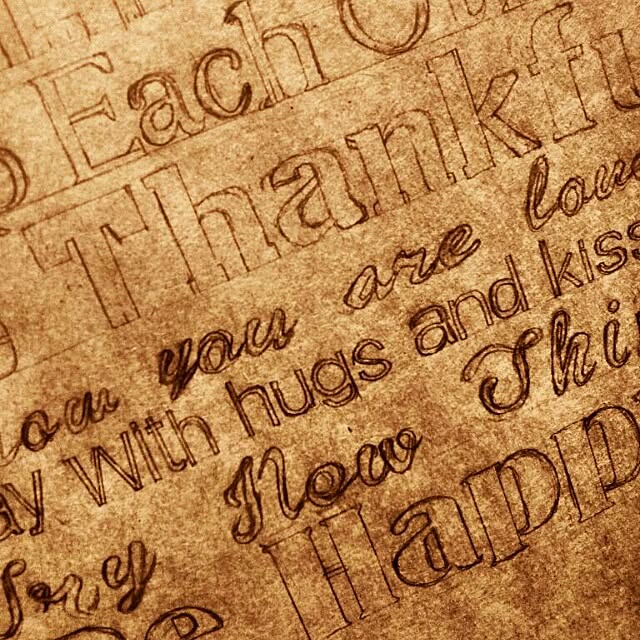 Each O
Thankfu
now you are love
ay With hugs and kiss
Try New Thi
e Happ